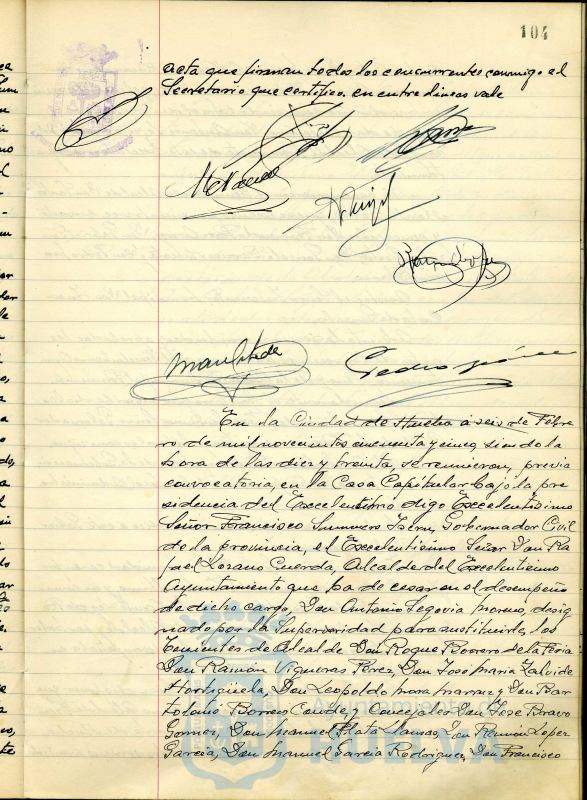 104
acta que firman todos los concurrentes conmigo el
Secretario que certifico. en entre lineas vale
En la Ciudad de Huelva a seis de Febre
ro de mil novecientos cincuenta y cinco, siendo la
hora de las diez y treinta, se reunieron, previa
convocatoria, en la Casa Capitular bajo la pre
sidencia del Excelentitmo digo Excelentísimo
Señor Francisco Summers Isern, Gobernador Civil
de la provincia, el Excelentísimo Señor Don Ra
fael Lozano Cuerda, Alcalde del Excelentísimo
Ayuntamiento que ha de cesar en el desempeño
de dicho cargo, Don Antonio Segovia Moreno, desig
nado por la Superioridad para sustituirle, los
Tenientes de Alcalde Don Roque Borrero de la Feria
Don Ramón Vigueras Perez, Don José Maria Zalvide
Hortigüela, Don Leopoldo Mora Marraz y Don Bar
tolomé Borrero Conde y Concejales Don Jose Bravo
Gomez, Don Manuel Plata Llamas, Don Ramón Lopez
Garcia, Don Manuel Garcia Rodriguez, Don Francisco
Ayuntamiento de
HUELVA